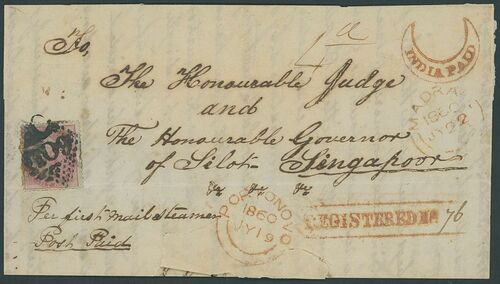 To,
4a
INDIA PAID
The Honourable Judge
and
MADRAS
1860
JY 22
The Honourable Governor
of Silot Singapoor
Per first mail steamer
Post Paid
PORTONOVO
1860
JY 19
REGISTERED No 76